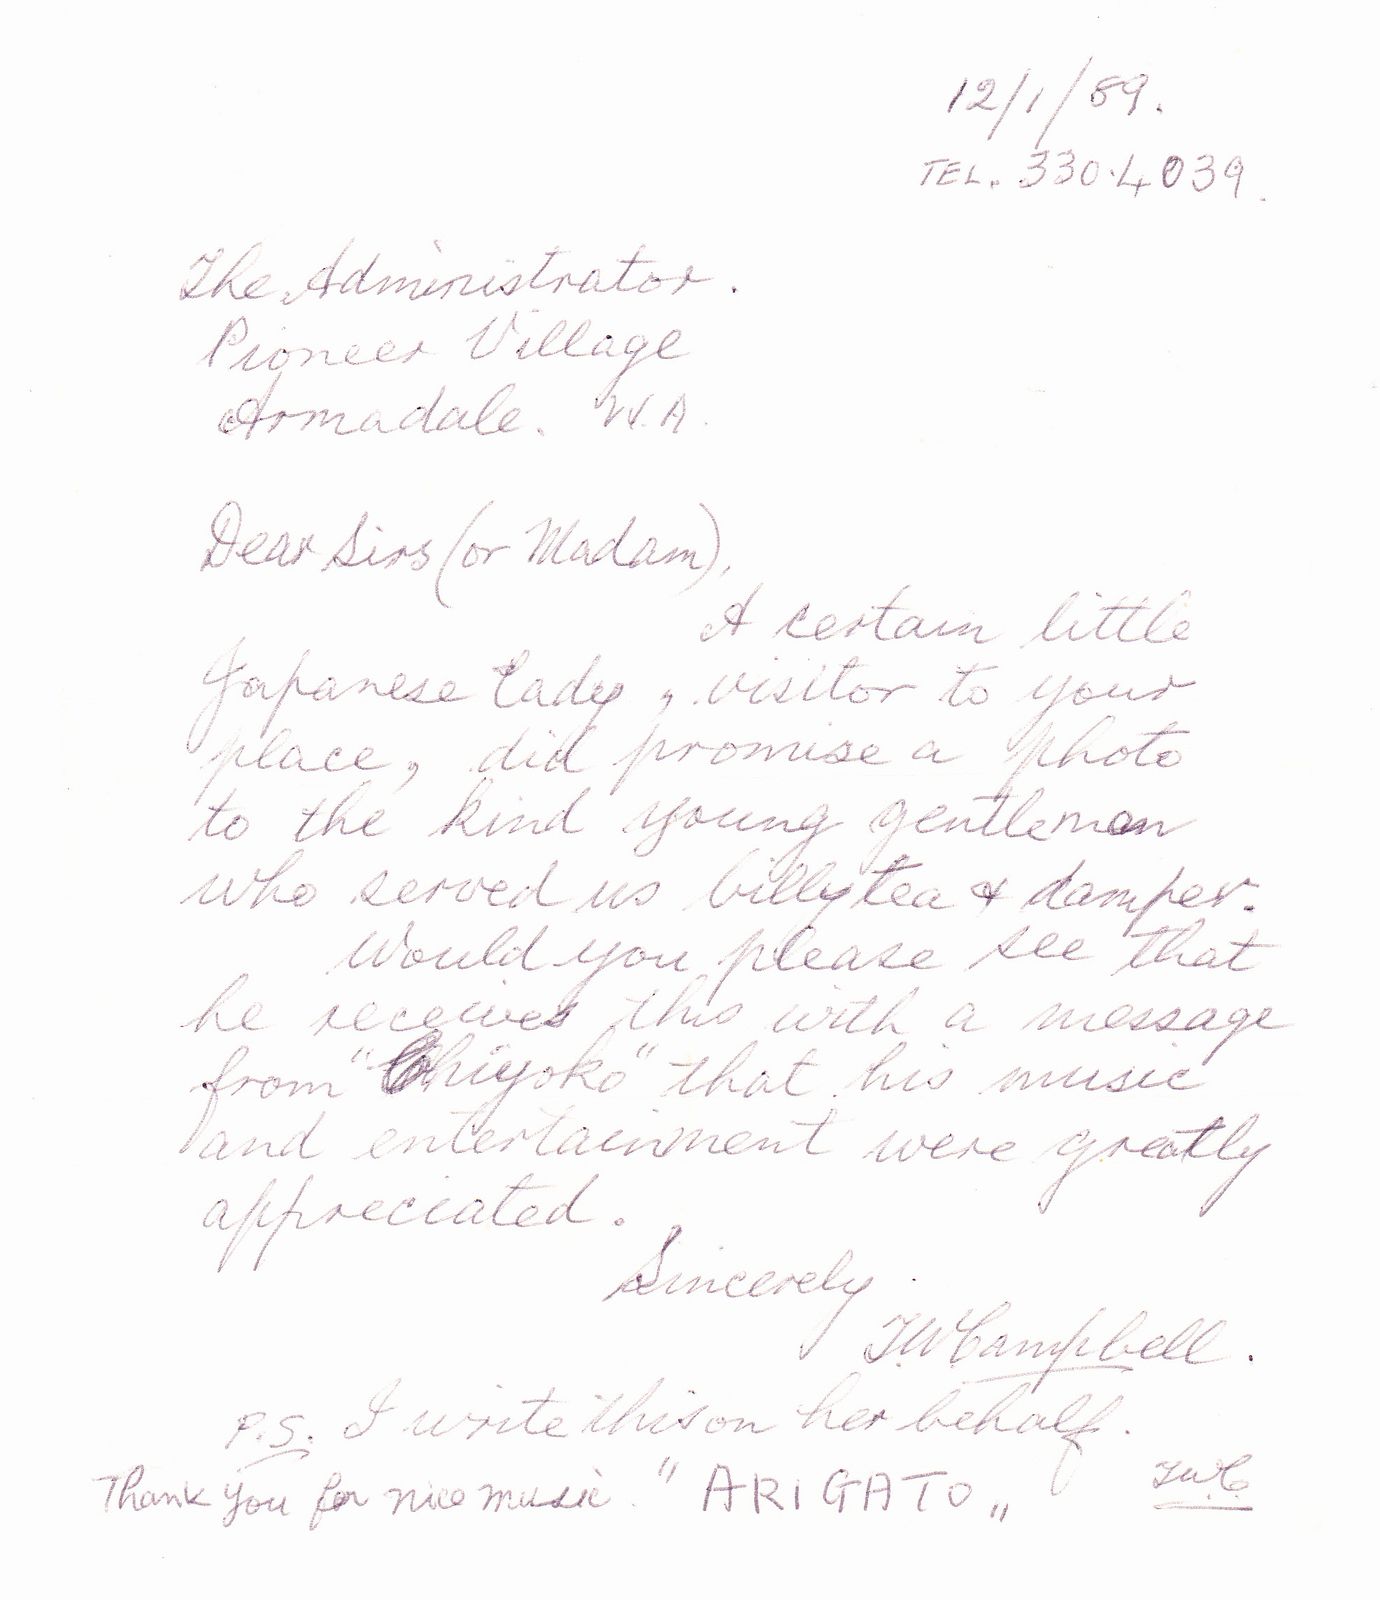 12/1/89.
TEL. 330.4039.
The Administrator.
Pioneer Village
Armadale. W.A.
Dear Sirs (or Madam),
A certain little
Japanese lady, visitor to your
place, did promise a photo
to the kind young gentleman
who served us billy tea & damper.
Would you please see that
he receives this with a message
from "Chiyoko" that his music
and entertainment were greatly
appreciated.
Sincerely
T.W.Campbell.
P.S. I write this on her behalf.
T.W.C.
Thank you for nice music. "ARIGATO"